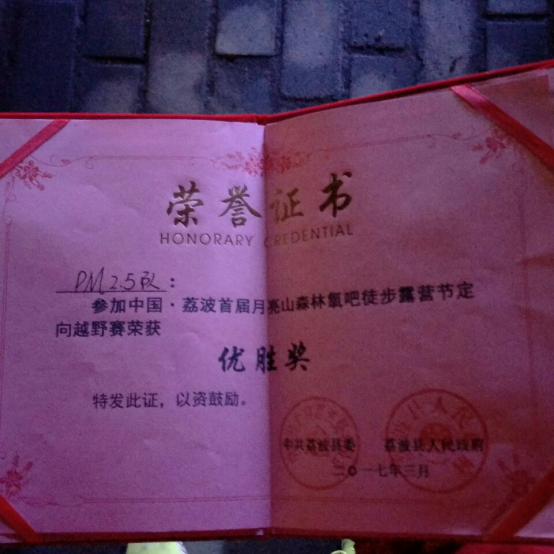 荣誉证书
HONORARY CREDENTIAL
PM2.5队：
参加中国·荔波首届月亮山森林氧吧徒步露营节定
向越野赛荣获
优胜奖
特发此证，以资鼓励。
中共荔波县委 荔波县人民政府
二〇一七年三月